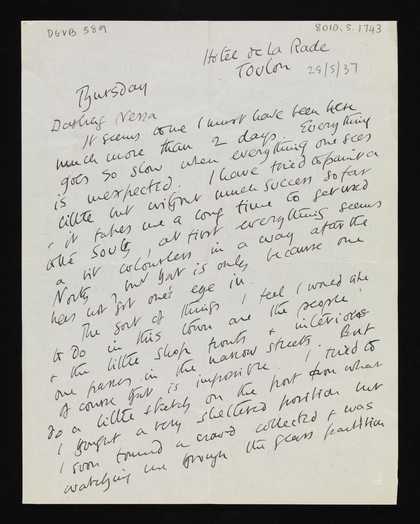 DGVB 589
8010.5.1743
Hotel de la Rade
Toulon
28/5/37
Thursday
Darling Nessa
It seems to me I must have been here
much more than 2 days. Everything
goes so slow when everything one sees
is unexpected. I have tried to paint a
little but without much success so far
, it takes me a long time to get used
to the South, at first everything seems
a bit colourless in a way after the
North, but that is only because one
has not got one's eye in.
The sort of things I feel I would like
to do in this town are the people,
& the little shop fronts & interiors
one passes in the narrow streets. But
of course that is impossible. I tried to
do a little sketch on the port from what
I thought a very sheltered position but
I soon found a crowd collected & was
watching me through the glass partition